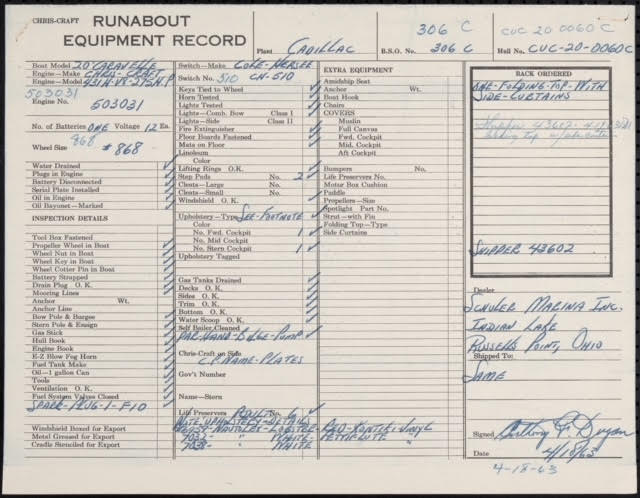 CHRIS-CRAFT RUNABOUT EQUIPMENT RECORD
Plant CADILLAC
306 C
B.S.O. No. 306 C
CUC 20 0060 C
Hull No. CUC-20-0060C
Boat Model 20' CARAVELLE
Engine—Make CHRIS-CRAFT
Engine—Model
503031
Engine No. 503031
No. of Batteries ONE Voltage 12 Ea.
868
Wheel Size #868
Water Drained
Plugs in Engine
Battery Disconnected
Serial Plate Installed
Oil in Engine
Oil Bayonet—Marked
INSPECTION DETAILS
Tool Box Fastened
Propeller Wheel in Boat
Wheel Nut in Boat
Wheel Key in Boat
Wheel Cotter Pin in Boat
Battery Strapped
Drain Plug O. K.
Mooring Lines
Anchor Wt.
Anchor Line
Bow Pole & Burgee
Stern Pole & Ensign
Gas Stick
Hull Book
Engine Book
E-Z Blow Fog Horn
Fuel Tank Make
Oil—1 gallon Can
Tools
Ventilation O. K.
Fuel System Valves Closed
SPARK-PLUG-1-F10
Windshield Boxed for Export
Metal Greased for Export
Cradle Stenciled for Export
Switch—Make COLE-HERSEE
Switch No. 510 CH-510
Keys Tied to Wheel
Horn Tested
Lights Tested
Lights—Comb. Bow Class I
Lights—Side Class II
Fire Extinguisher
Floor Boards Fastened
Mats on Floor
Linoleum
Color
Lifting Rings O. K.
Step Pads No. 2
Cleats—Large No.
Cleats—Small No.
Windshield O. K.
Upholstery—Type SEE-FOOTNOTE
No. Fwd. Cockpit 1
No. Mid Cockpit
No. Stern Cockpit 1
Upholstery Tagged
Gas Tanks Drained
Decks O. K.
Sides O. K.
Trim O. K.
Bottom O. K.
Water Scoop O. K.
Self Bailer Cleaned
PAR-HAND-BILGE-PUMP
Chris-Craft on Side
C.P. NAME-PLATES
Gov't Number
Name—Stern
Life Preservers ADULT 6
NOTE-UPHOLSTERY-DETAIL
RED-KONTIKI-VINYL
7032- " WHITE-PETTIPOINT "
" WHITE "
EXTRA EQUIPMENT
Amidship Seat
Anchor Wt.
Boat Hook
Chairs
COVERS
Muslin
Full Canvas
Fwd. Cockpit
Mid. Cockpit
Aft Cockpit
Bumpers No.
Life Preservers No.
Motor Box Cushion
Paddle
Propellers—Size
Spotlight Part No.
Strut—with Fin
Folding Top—Type
Side Curtains
BACK ORDERED
ONE-FOLDING-TOP-WITH
SIDE-CURTAINS
Shipper 43602
SHIPPER 43602
Dealer
SCHULER MARINA INC.
INDIAN LAKE
RUSSELLS POINT, OHIO
Shipped To:
SAME
Signed
Date 4/18/63
4-18-63